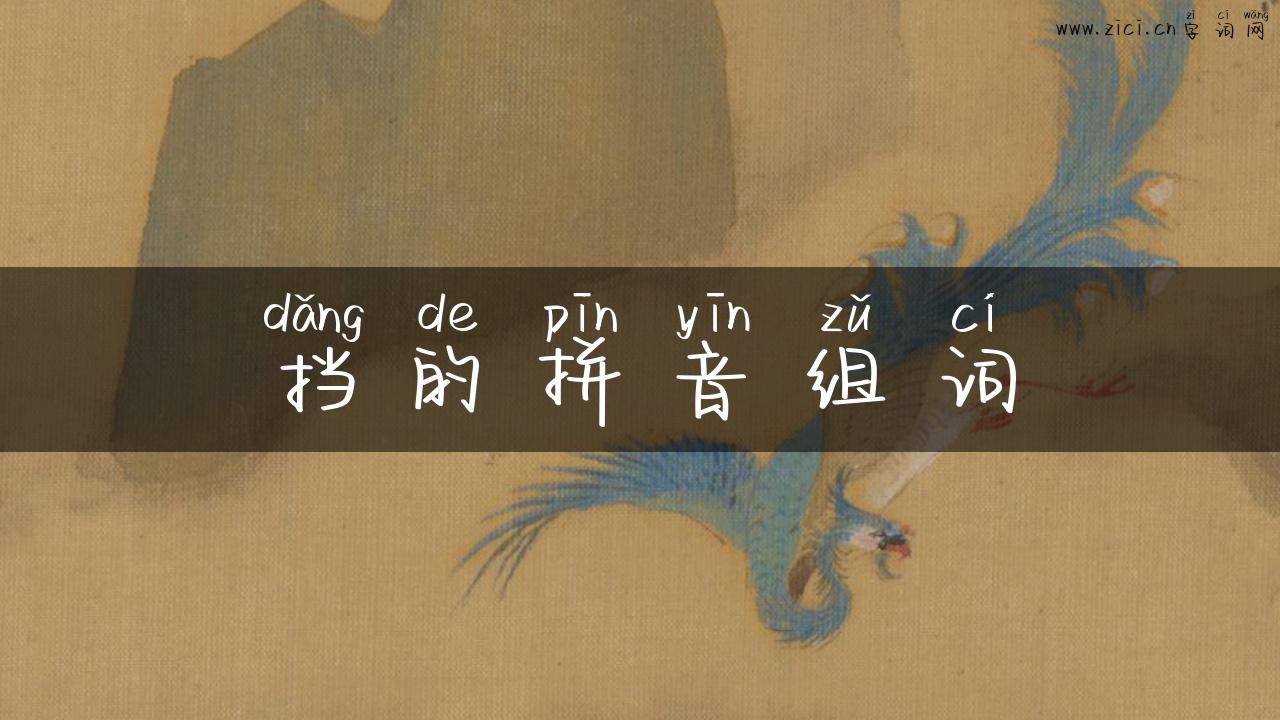 zì cí wǎng
www.zici.cn 字词网
dǎng de pīn yīn zǔ cí
挡的拼音组词